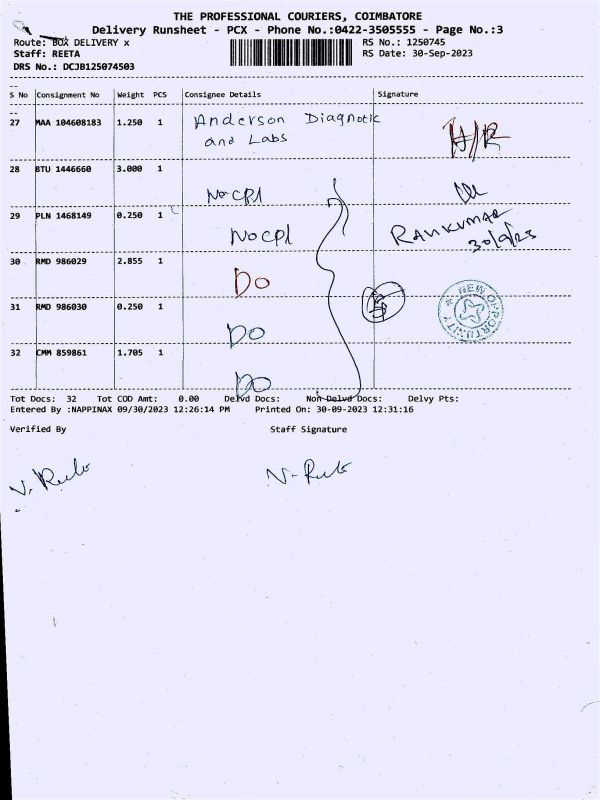 THE PROFESSIONAL COURIERS, COIMBATORE
Delivery Runsheet - PCX - Phone No.:0422-3505555 - Page No.:3
Route: BOX DELIVERY x RS No.: 1250745
Staff: REETA RS Date: 30-Sep-2023
DRS No.: DCJB125074503
S No Consignment No Weight PCS Consignee Details Signature
27 MAA 104608183 1.250 1 Anderson Diagnotic
and Labs
H/R
28 BTU 1446660 3.000 1
Nocpl
29 PLN 1468149 0.250 1
Nocpl
RAVIKUMAR
30/9/23
30 RMD 986029 2.855 1
DO
31 RMD 986030 0.250 1
DO
NEW OPPORTUNITY
32 CMM 859861 1.705 1
DO
Tot Docs: 32 Tot COD Amt: 0.00 Delvd Docs: Non Delvd Docs: Delvy Pts:
Entered By :NAPPINAX 09/30/2023 12:26:14 PM Printed On: 30-09-2023 12:31:16
Verified By Staff Signature